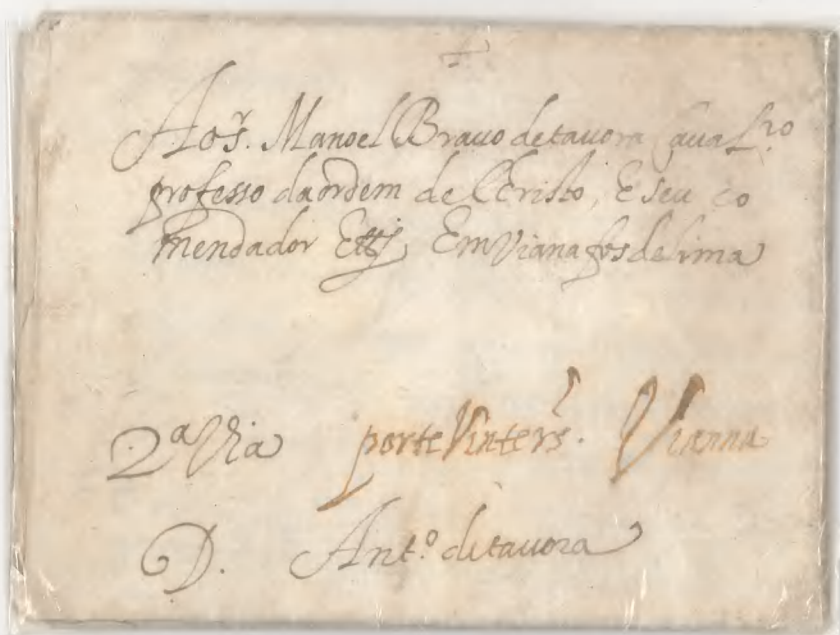 Ao sr. Manoel Bravo de tavora Caualr.o
professo da ordem de Christo, E seu co
mendador Ettc. Em Viana fos de lima
2a Via porte Vinte rs. Vianna
D. Ant.o de tavora